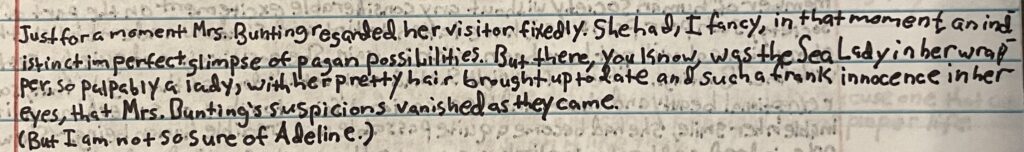 Just for a moment Mrs. Bunting regarded her visitor fixedly. She had, I fancy, in that moment an ind
istinct imperfect glimpse of pagan possibilities. But there, you know, was the Sea Lady in her wrap-
per, so palpably a lady, with her pretty hair brought up to date and such a frank innocence in her
eyes, that Mrs. Bunting's suspicions vanished as they came.
(But I am not so sure of Adeline.)